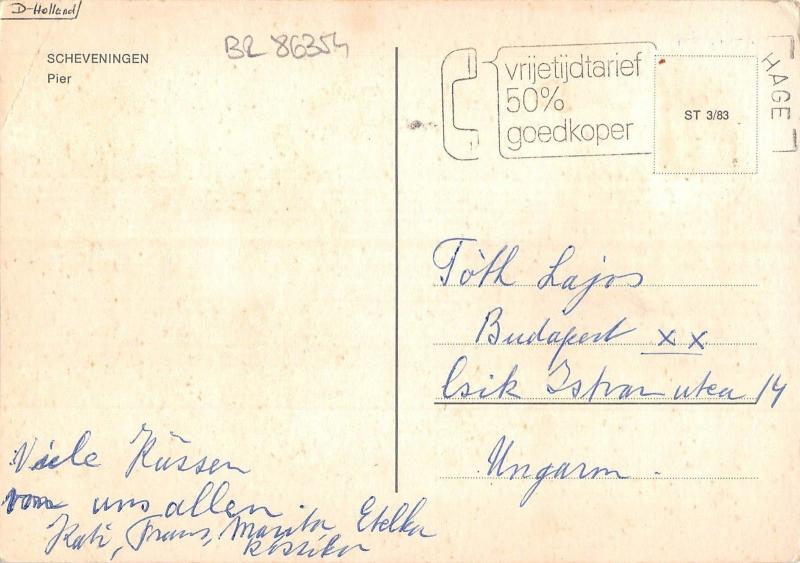 D-Holland
SCHEVENINGEN
Pier
BR 86354
vrijetijdtarief
50%
goedkoper
HAGE
ST 3/83
Tóth Lajos
Budapest XX
Csik Istvan utca 14
Ungarn.
Viele Küssen
von uns allen
Kati, Frans, Marita Etelka